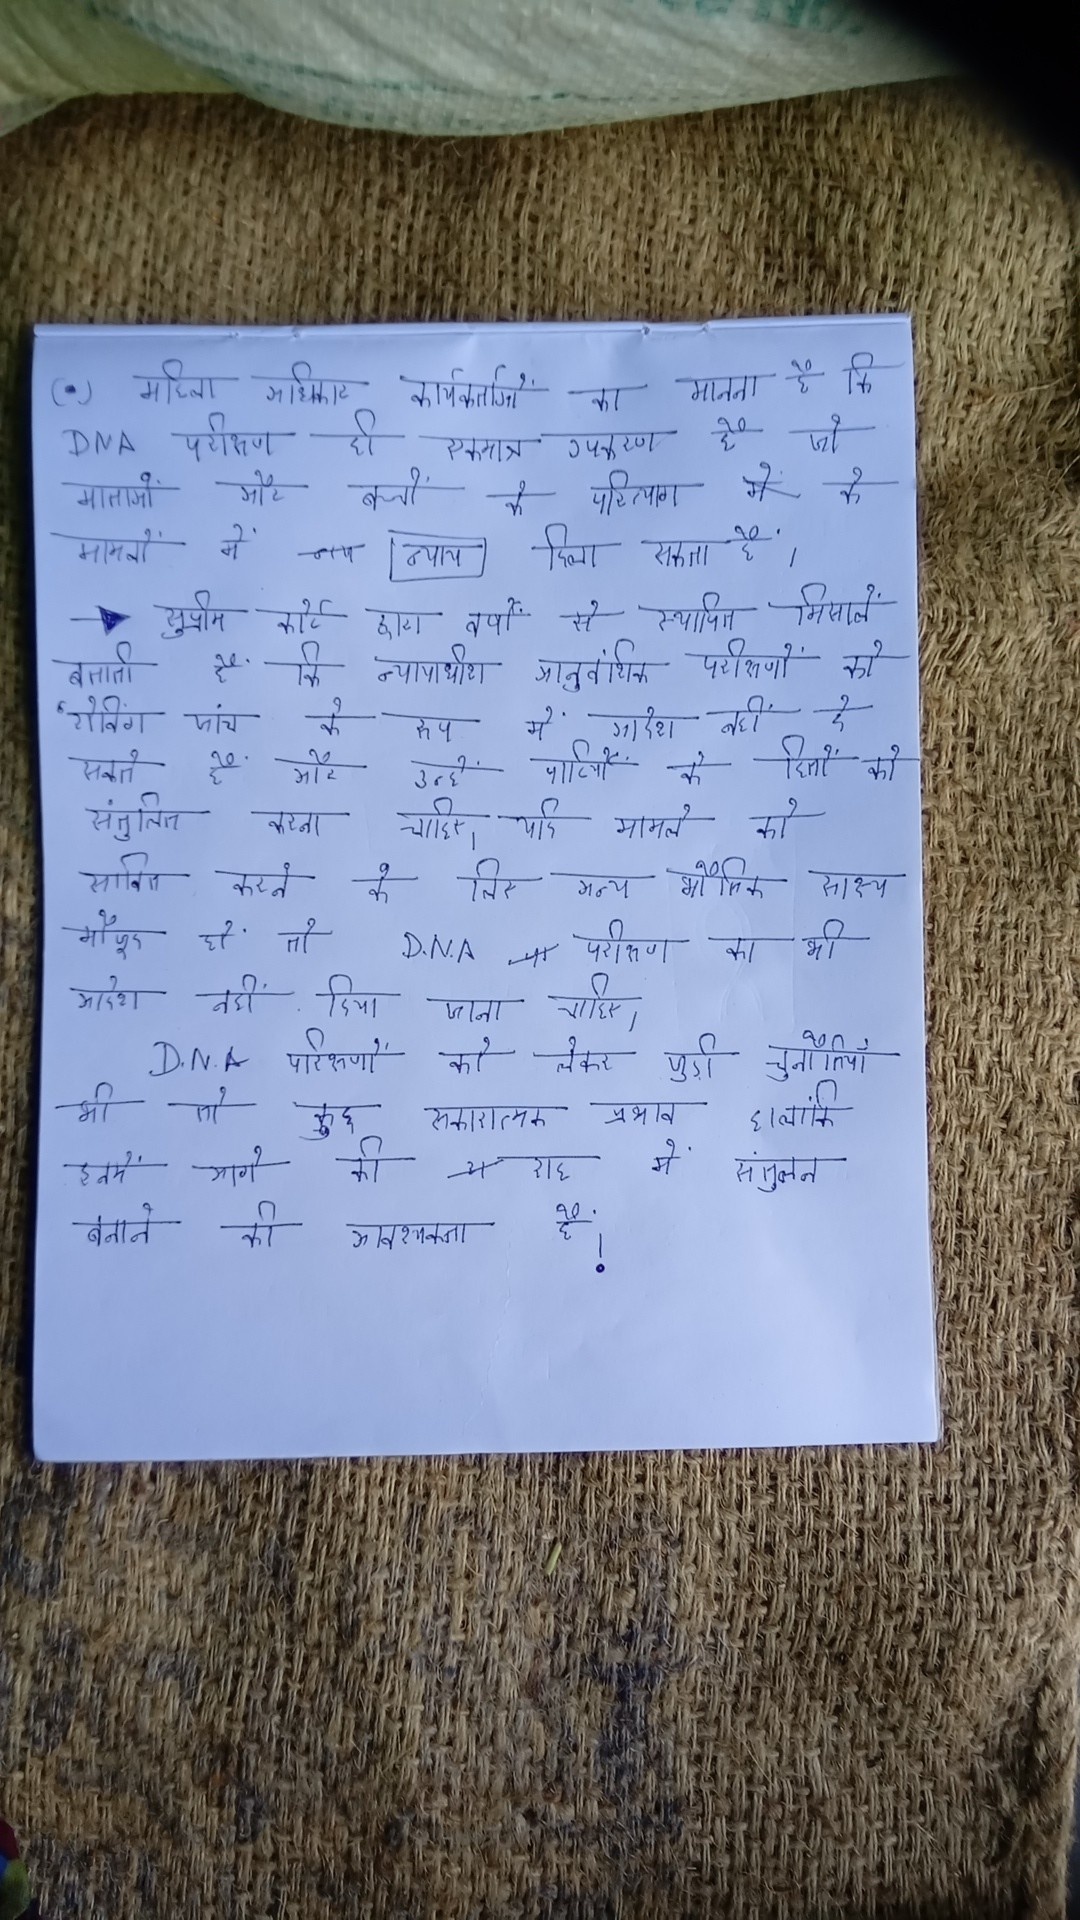 (•) महिला अधिकार कार्यकर्ताओं का मानना है कि
DNA परीक्षण ही एकमात्र उपकरण है जो
माताओं और बच्चों के परित्याग में के
मामलों में न्याय दिला सकता है।
→ सुप्रीम कोर्ट द्वारा वर्षों से स्थापित मिसालें
बताती हैं कि न्यायाधीश आनुवंशिक परीक्षणों को
रोविंग जांच के रूप में आदेश नहीं दे
सकते हैं और उन्हें पार्टियों के हितों को
संतुलित करना चाहिए। यदि मामले को
साबित करने के लिए अन्य भौतिक साक्ष्य
मौजूद हों तो D.N.A परीक्षण का भी
आदेश नहीं दिया जाना चाहिए।
D.N.A परिक्षणों को लेकर जुड़ी चुनौतियाँ
भी तो कुछ सकारात्मक प्रभाव हालांकि
इनमें आगे की राह में संतुलन
बनाने की आवश्यकता हैं!